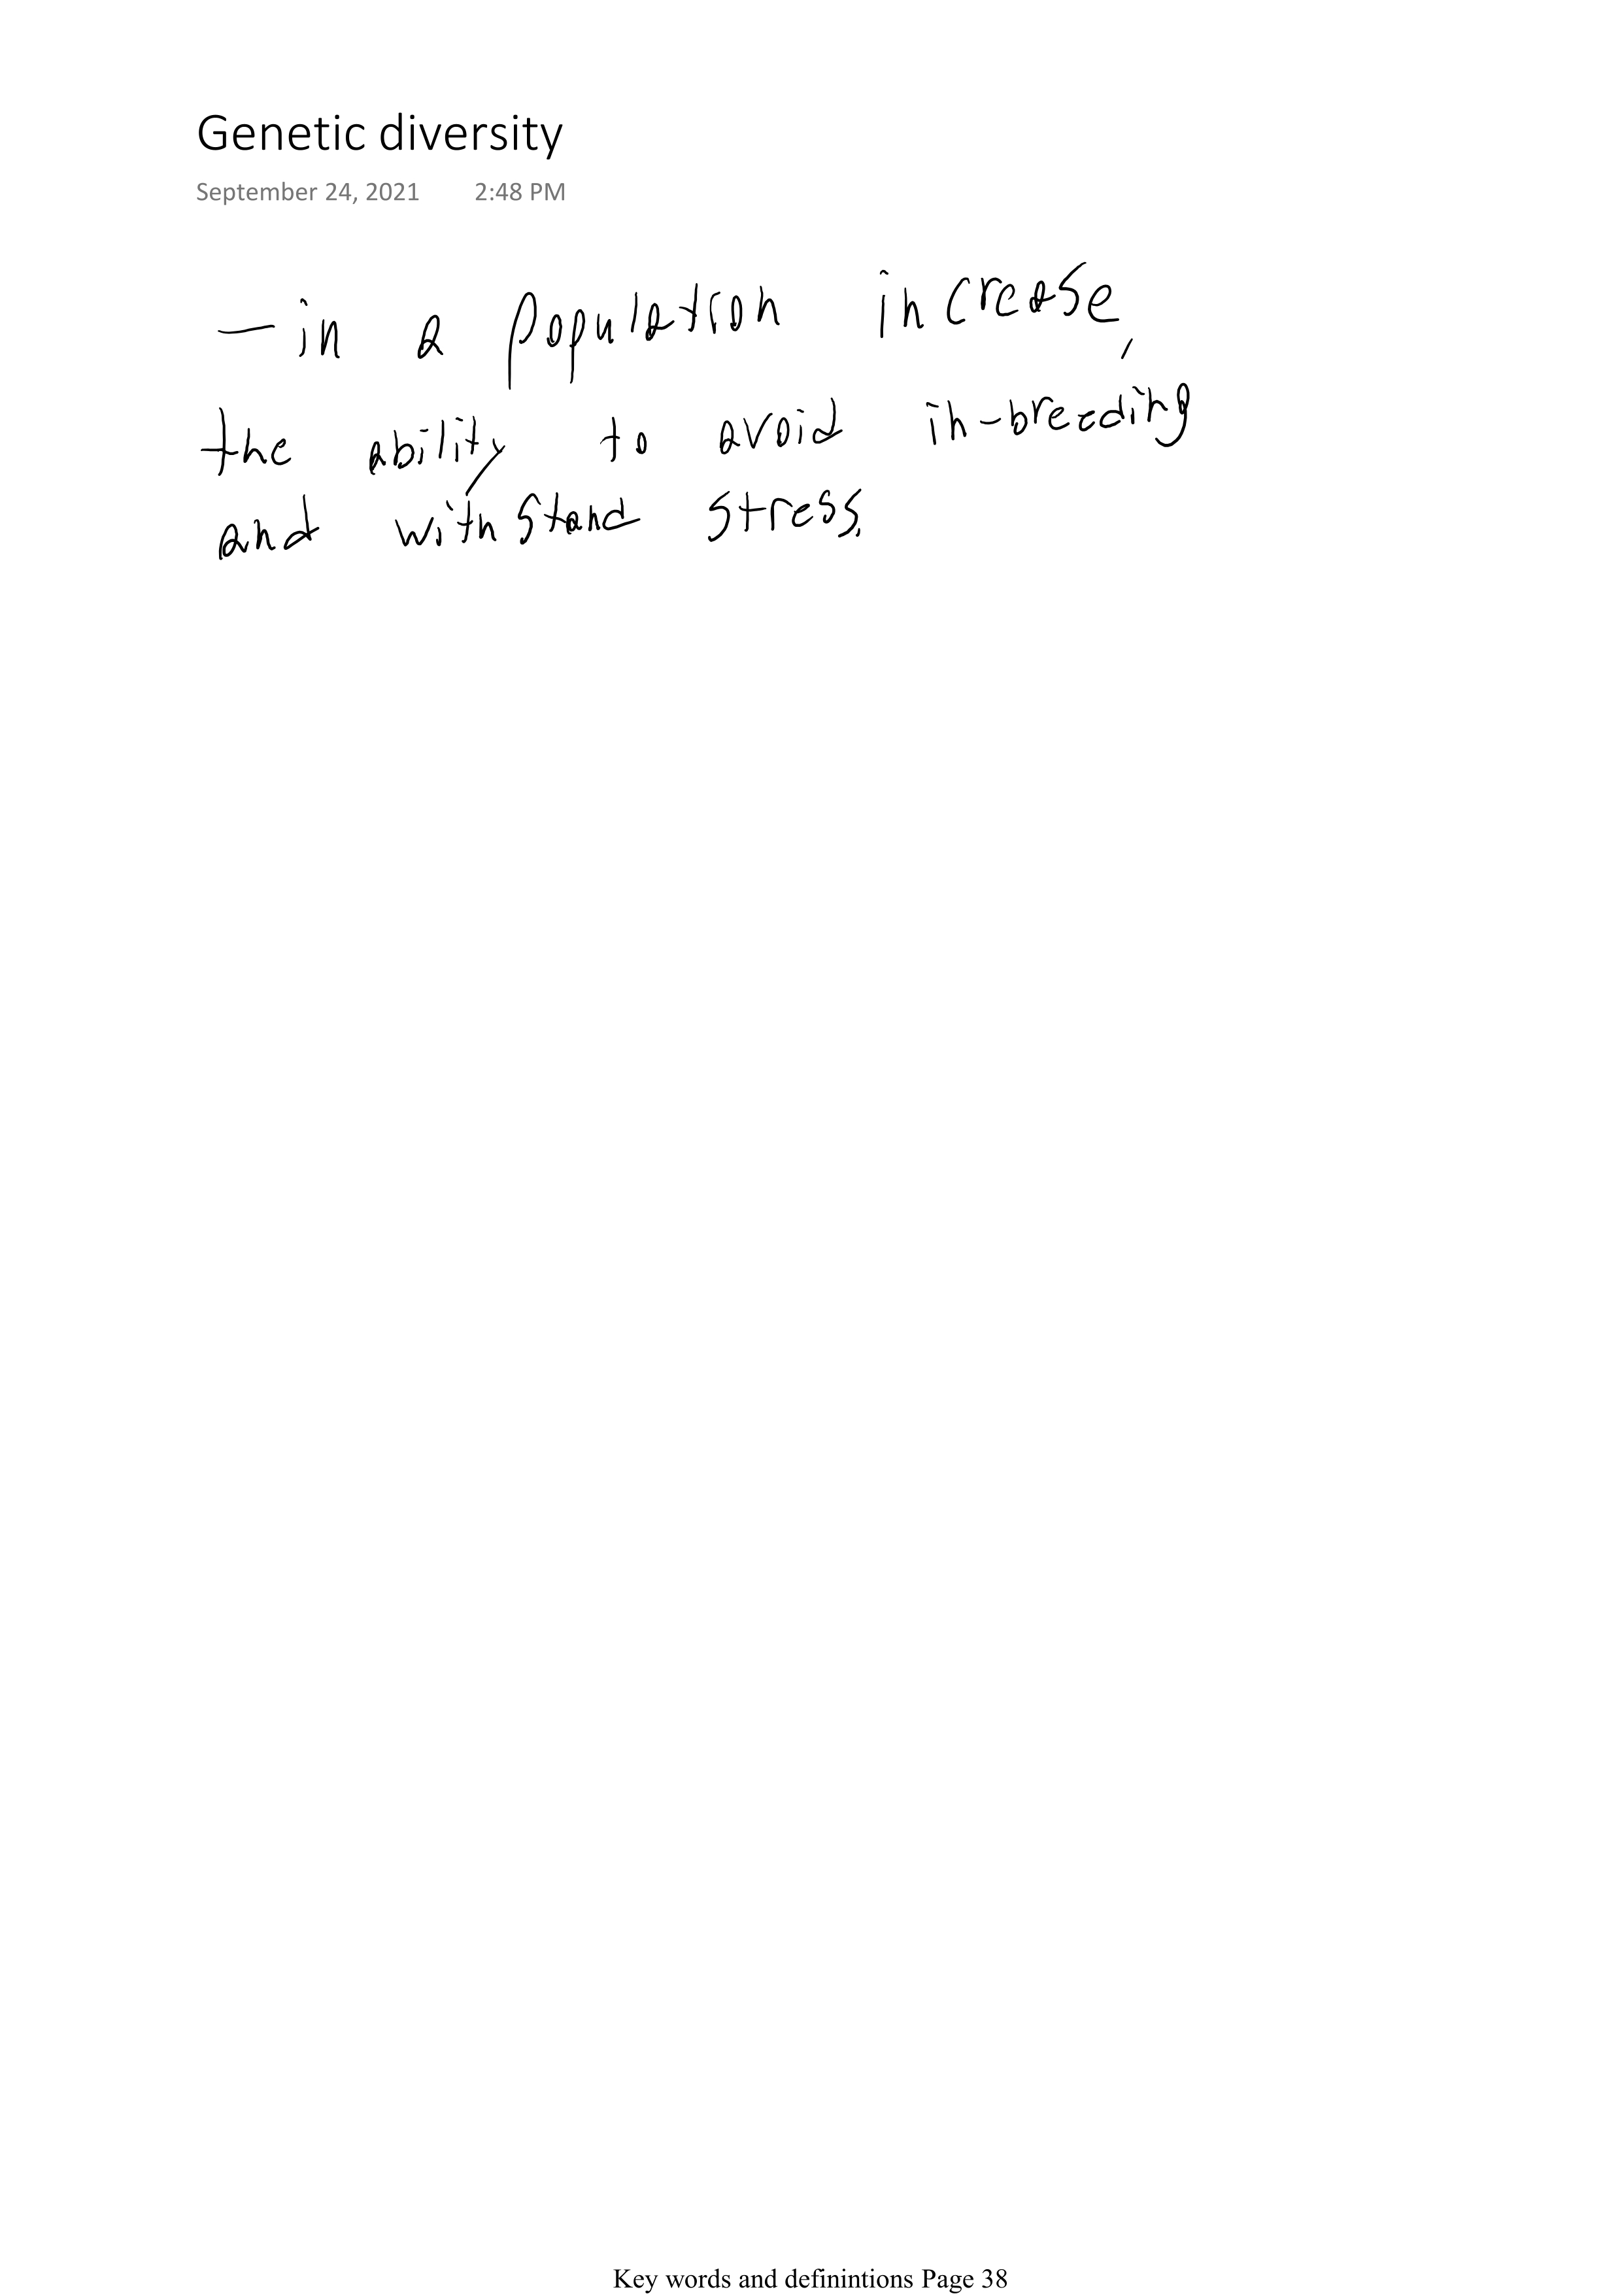 Genetic diversity
September 24, 2021 2:48 PM
— in a population increase,
the ability to avoid in-breeding
and withstand stress.
Key words and definintions Page 38